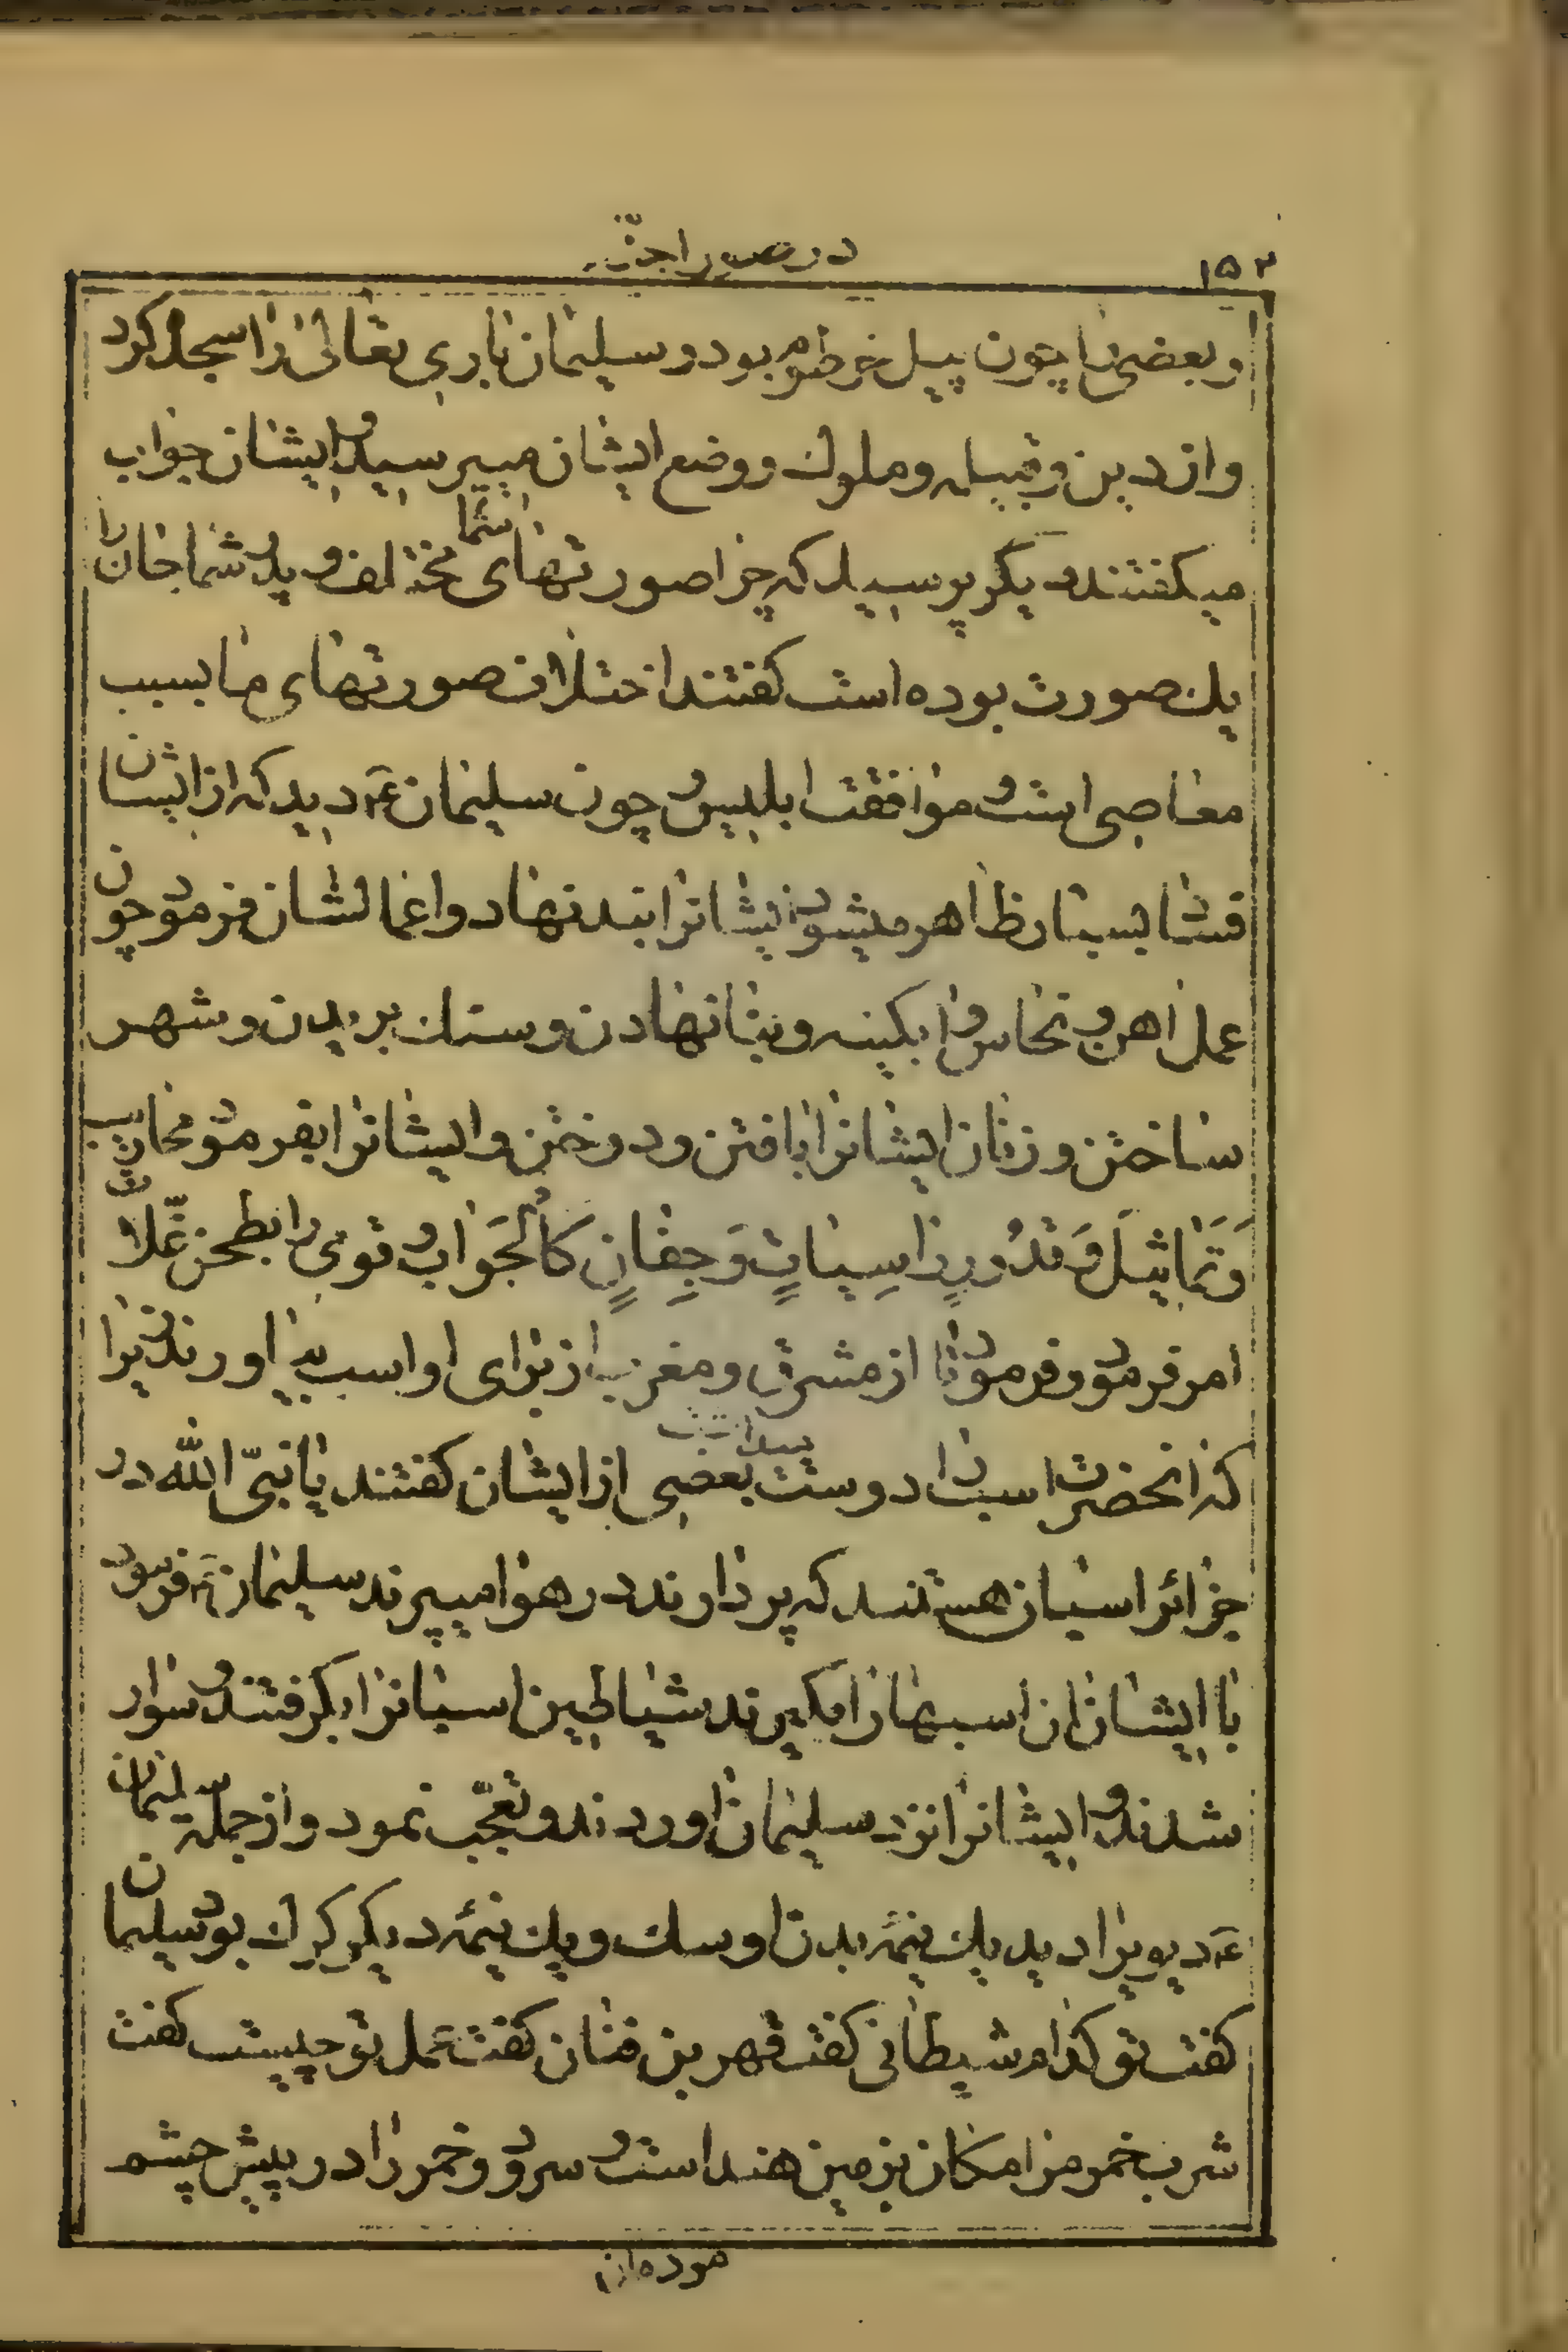 ۱۵۲
در صور اجنّه
و بعضی را چون پیل خرطوم بود و سلیمان باری تعالی را سجده کرد
و از دین و قبیله و ملوک و وضع ایشان میپرسید و ایشان جواب
میکفتند دیکر پرسید که چرا صورتهای شما مختلف و پدر شما جان را
یک صورت بوده است کفتند اختلاف صورتهای ما بسبب
معاصی است و موافقت ابلیس و چون سلیمان عَ دید که از ایشان
فساد بسیار ظاهر میشود ایشانرا بند نهاد و اعمالشان فرمود چون
عمل اهن و نحاس و ابکینه و بنا نهادن و سنک بریدن و شهر
ساختن و زنان ایشانرا بافتن و دوختن و ایشانرا بفرمود محاریب
وَ تَماثیلَ وَ قدُورٍ راسِیاتٍ وَ جِفانٍ کَالجَوابِ و قومی را بطحن غلّات
امر فرمود و فرمود تا از مشرق و مغرب از برای او اسب بیاورند زیرا
که انحضرت اسب را دوست میداشت بعضی از ایشان کفتند یا نبیّ الله در
جزائر اسبان هستند که پر دارند در هوا میپرند سلیمان عَ فرمود
با ایشان ان اسبها را بکیرند شیاطین اسبانرا بکرفتند و سوار
شدند و ایشانرا نزد سلیمان اوردند و تعجّب نمود و از جمله سلیمان
عَ دیویرا دید یک نیمهٔ بدن او سک و یک نیمهٔ دیکر کرک بود سلیمان
کفت تو کدام شیطانی کفت قهر بن فنان کفت عمل تو چیست کفت
شرب خمر مرا مکان بزمین هند است و سرود و خمر را در پیش چشم